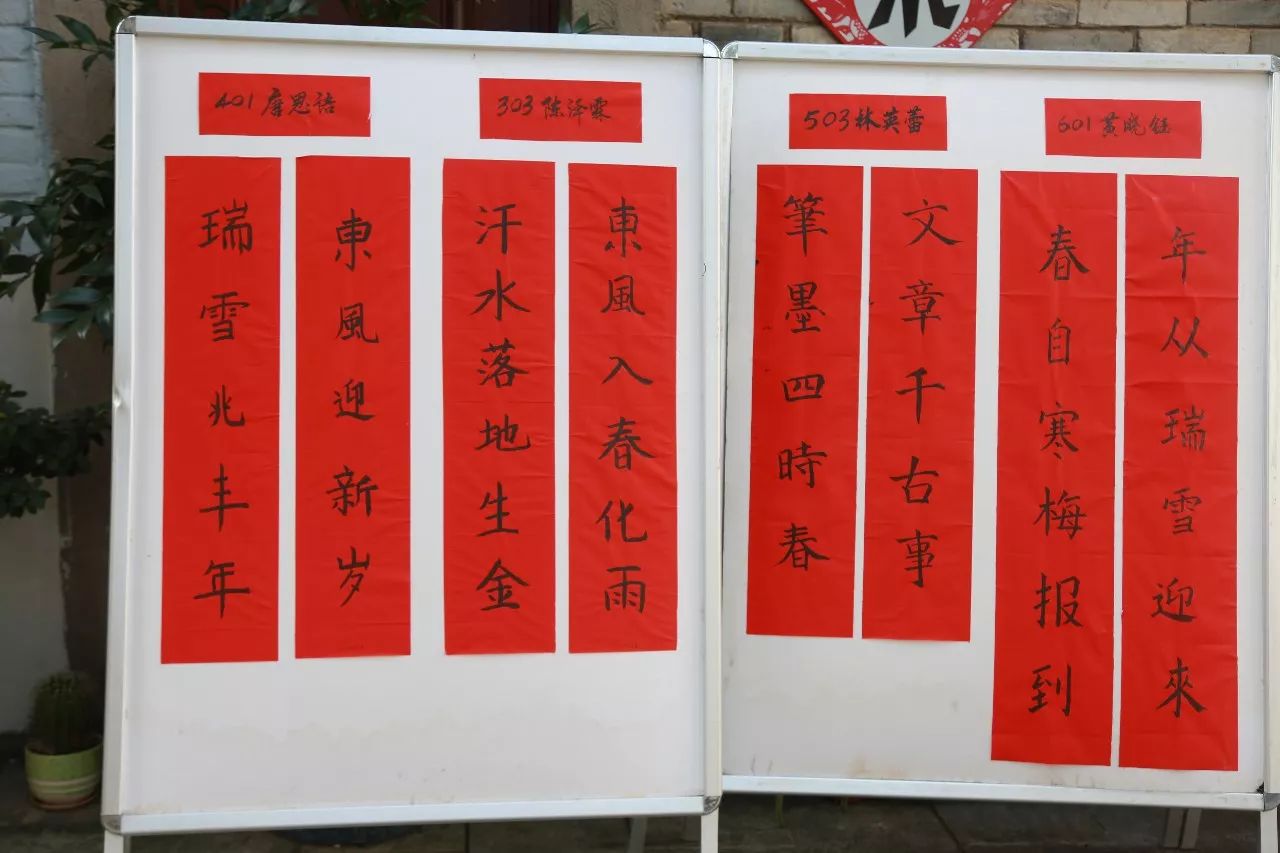 401唐思语
303陈泽霖
503林英蕾
601黄晓钰
東風迎新岁
瑞雪兆丰年
東風入春化雨
汗水落地生金
文章千古事
筆墨四時春
年从瑞雪迎來
春自寒梅报到